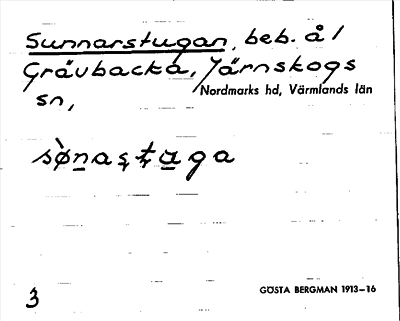 Sunnarstugan, beb. å /
Grävbacka, Järnskogs
sn, Nordmarks hd, Värmlands län
sø̀na̱ṣṭa̱ga
3
GÖSTA BERGMAN 1913–16